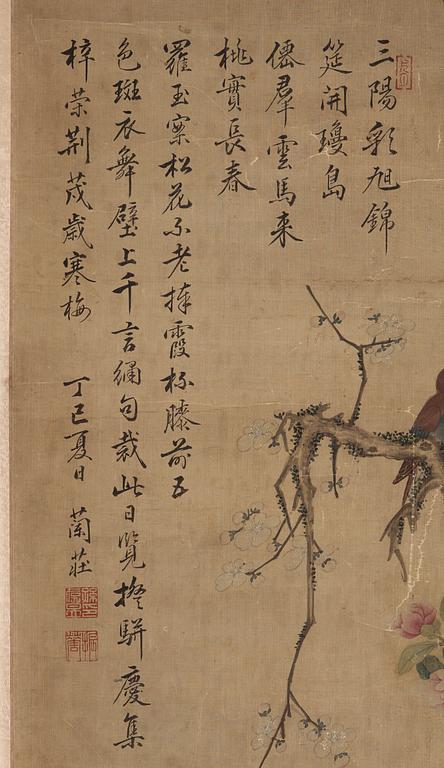 三陽彩旭錦
筵開瓊島
僊羣雲馬来
桃實長春
羅玉案松花不老捧霞杯膝前五
色斑衣舞壁上千言繡句裁此日覽揆駢慶集
梓荣荆茂歳寒梅
丁巳夏日 蘭莊